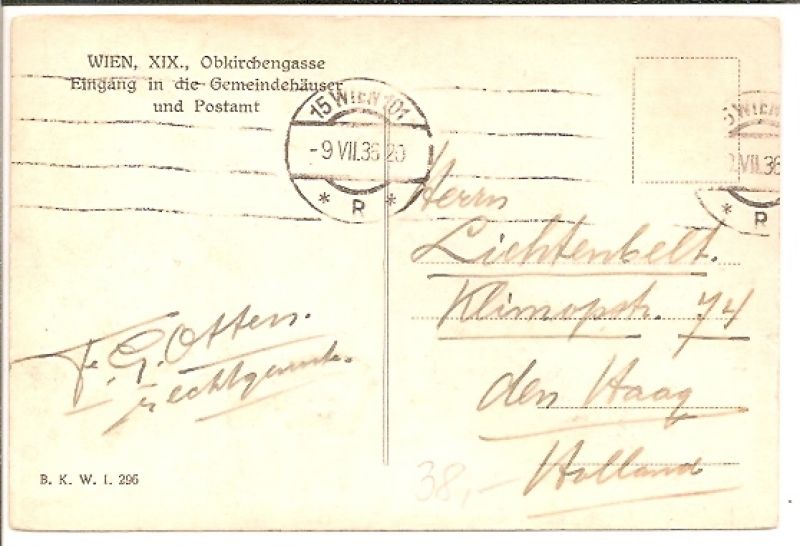 WIEN, XIX., Obkirchengasse
Eingang in die Gemeindehäuser
und Postamt
15 WIEN 101
-9 VII.36 20
* R *
WIEN
VII.36
* R
Herrn
Lichtenbelt.
Klimopstr. 74
den Haag
Holland
F. G. Otten.
B. K. W. I. 296
38,-